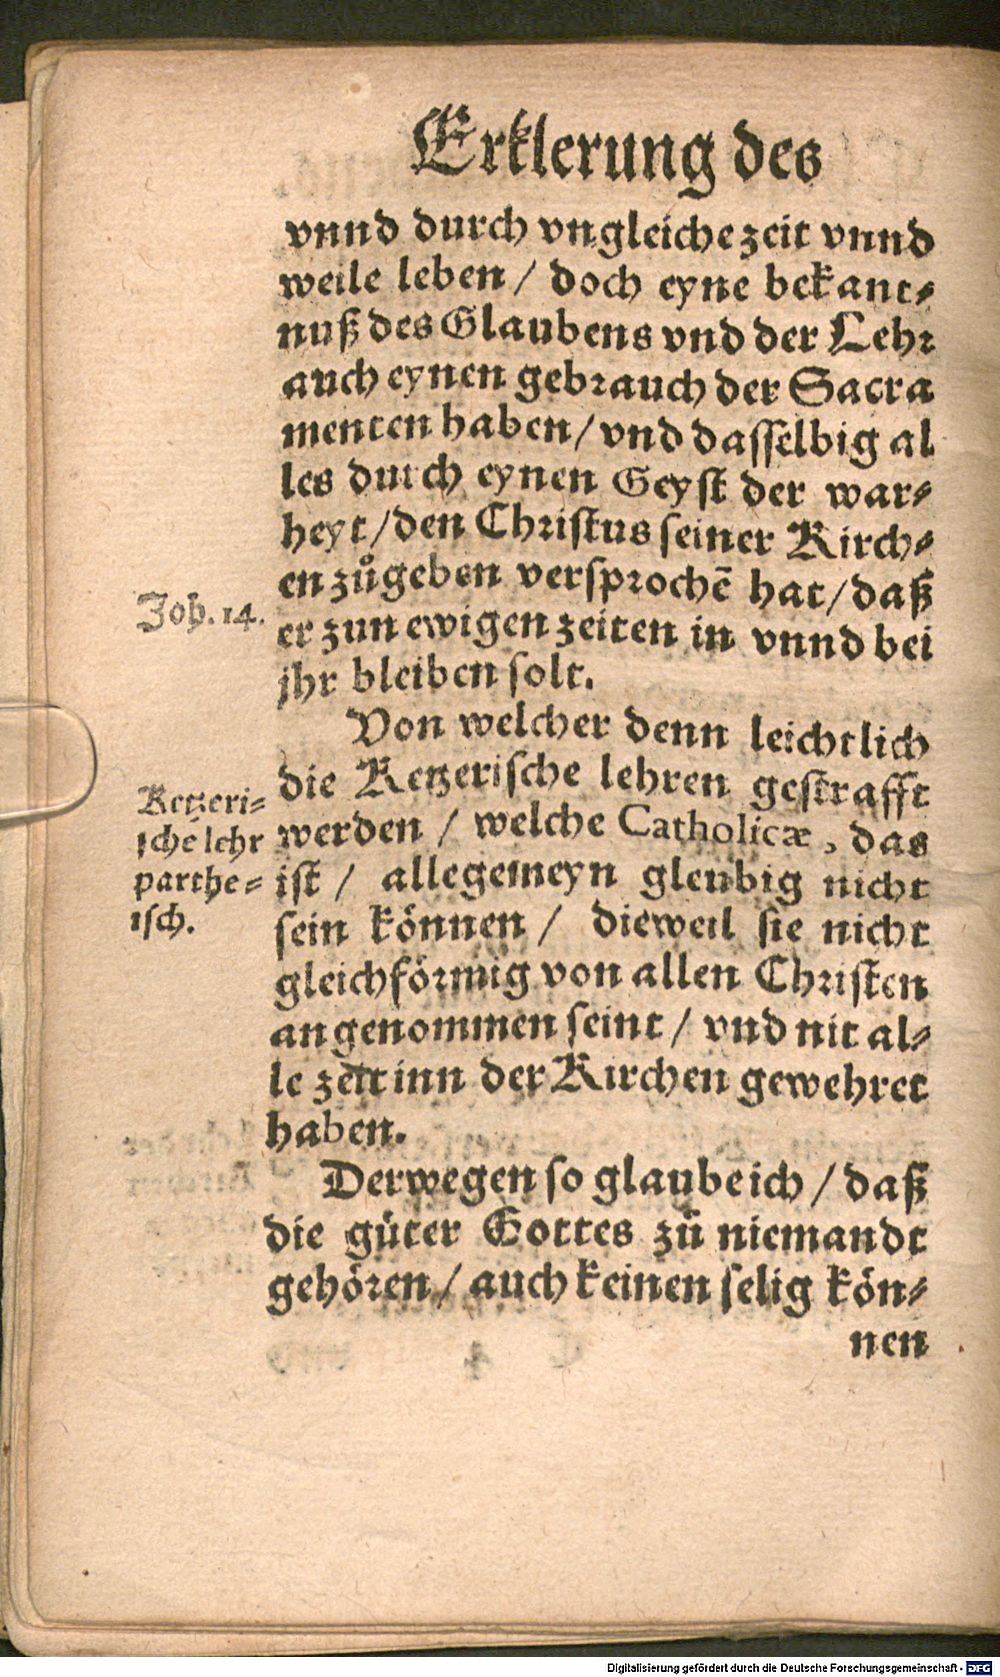 Erklerung des
vnnd durch vngleiche zeit vnnd
weile leben / doch eyne bekant⸗
nuß des Glaubens vnd der Lehr
auch eynen gebrauch der Sacra
menten haben / vnd dasselbig al
les durch eynen Geyst der war⸗
heyt / den Christus seiner Kirch⸗
en zůgeben versprochē hat / daß
Joh. 14.
er zun ewigen zeiten in vnnd bei
jhr bleiben solt.
Von welcher denn leichtlich
die Ketzerische lehren gestrafft
Ketzeri⸗
sche lehr
parthe⸗
isch.
werden / welche Catholicæ, das
ist / allegemeyn gleubig nicht
sein können / dieweil sie nicht
gleichförmig von allen Christen
angenommen seint / vnd nit al⸗
le zeit inn der Kirchen gewehret
haben.
Derwegen so glaube ich / daß
die güter Gottes zů niemandt
gehören / auch keinen selig kön⸗
nen
Digitalisierung gefördert durch die Deutsche Forschungsgemeinschaft - DFG